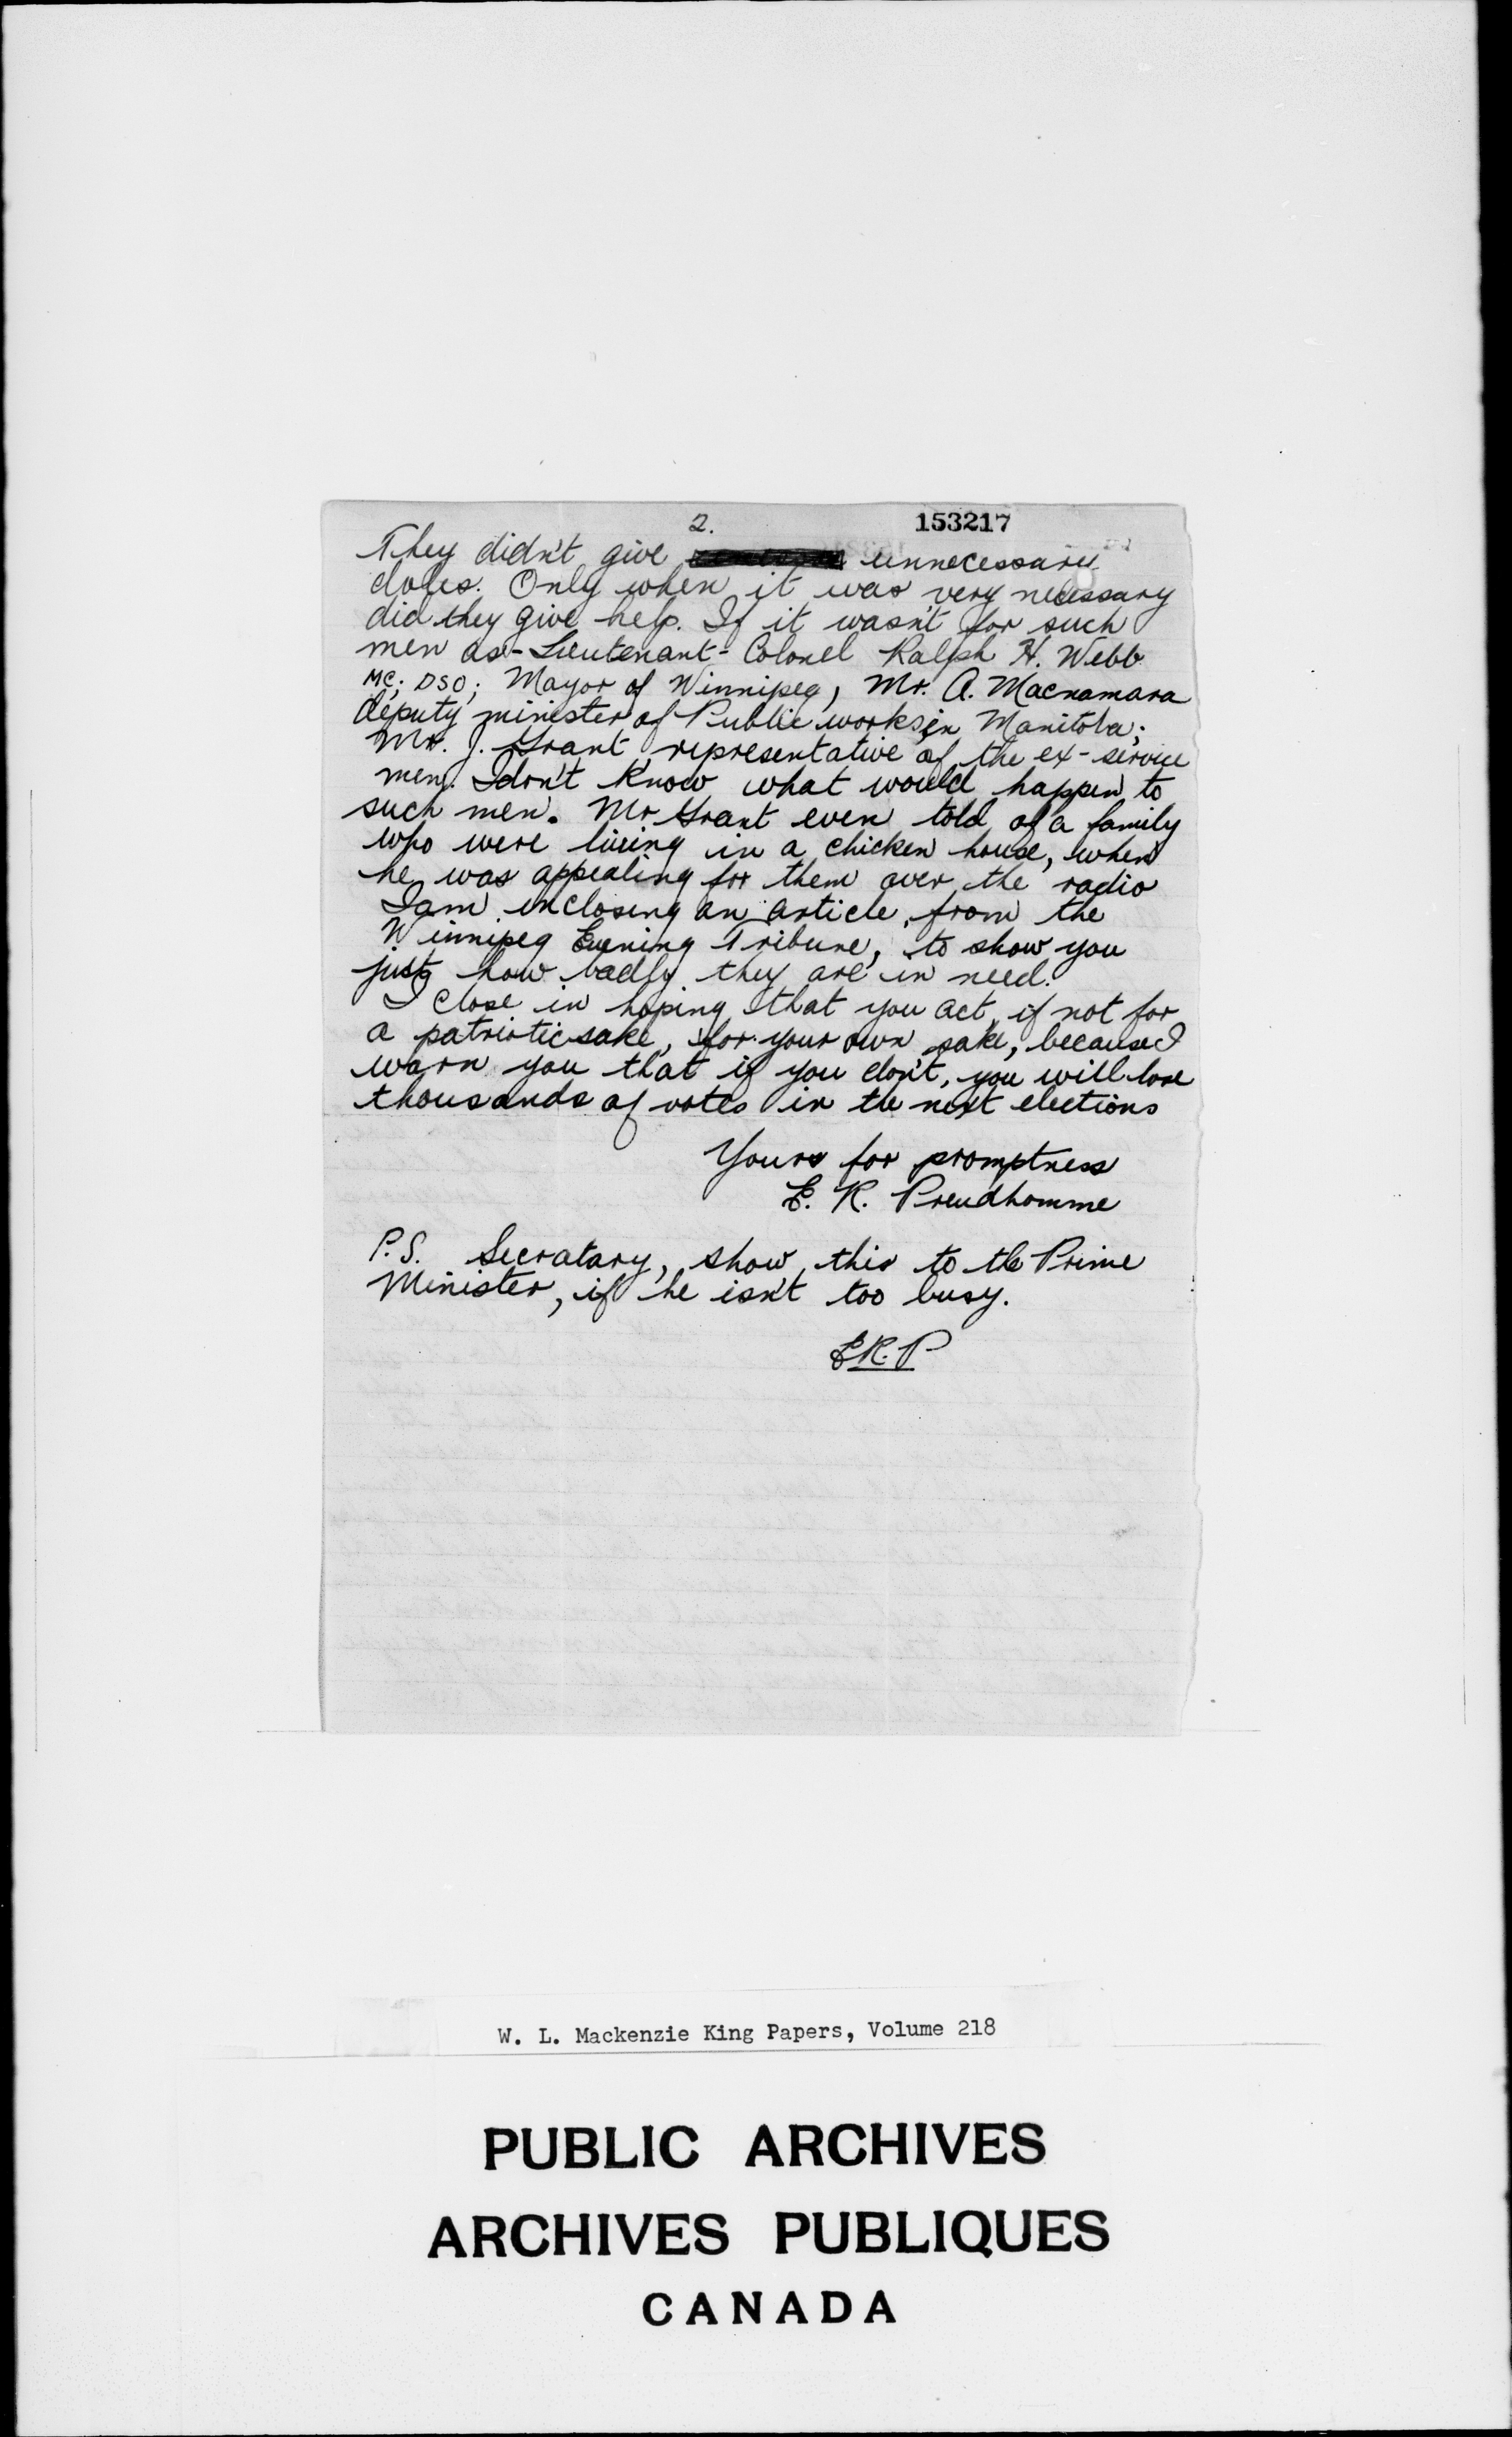 2.
153217
They didn't give unnecessary
doles. Only when it was very necessary
did they give help. If it wasn't for such
men as - Lieutenant - Colonel Ralph H. Webb
MC; DSO; Mayor of Winnipeg, Mr. A. Macnamara
deputy minister of Public works in Manitoba;
Mr. J. Grant, representative of the ex-service
men. I don't know what would happen to
such men. Mr Grant even told of a family
who were living in a chicken house, when
he was appealing for them over the radio
I am inclosing an article, from the
Winnipeg Evening Tribune, to show you
just how badly they are in need.
I close in hoping that you act, if not for
a patriotic sake, for your own sake, because I
warn you that if you don't, you will lose
thousands of votes in the next elections
Yours for promptness
E. R. Preudhomme
P.S. Secratary, show this to the Prime
Minister, if he isn't too busy.
E.R.P
W. L. Mackenzie King Papers, Volume 218
PUBLIC ARCHIVES
ARCHIVES PUBLIQUES
CANADA